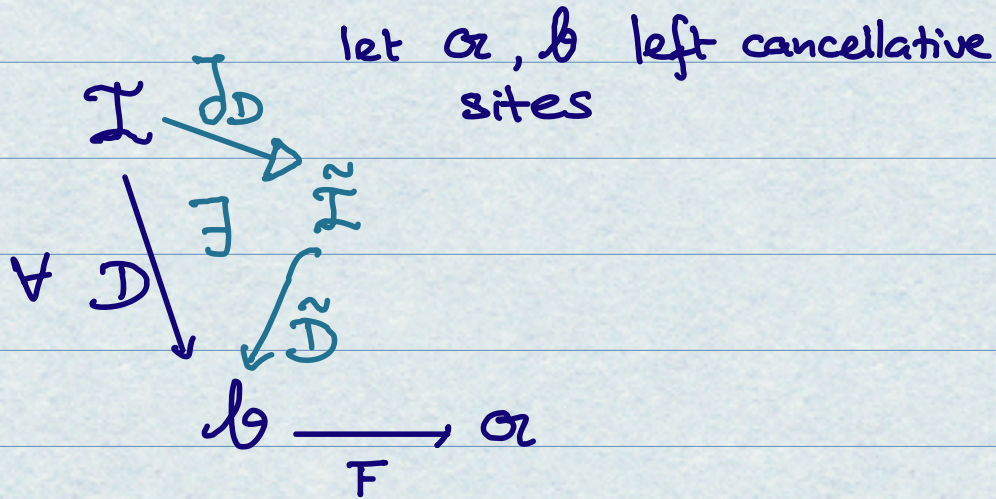 let 𝔞, 𝔟 left cancellative
sites
I
Ĩ
∃
∀ D
D̃
𝔟 → 𝔞
F